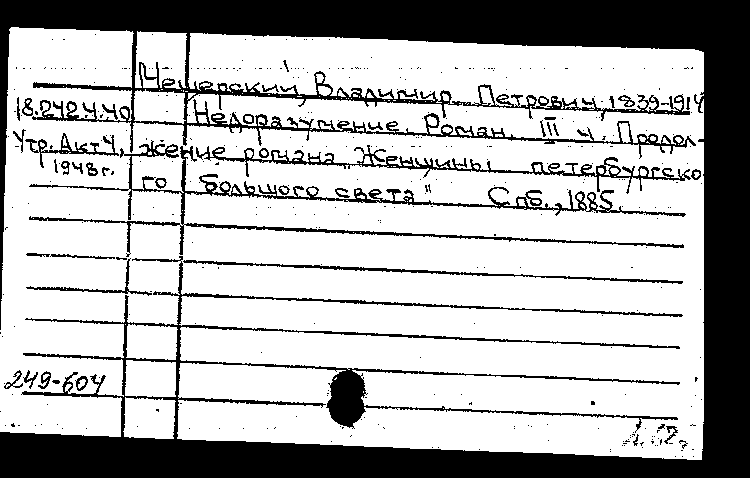 Мещерский, Владимир Петрович, 1839-1914
18.242.4.40 Недоразумение. Роман. III ч. Продол-
Утр. Акт 4, жение романа „Женщины петербургско-
1948 г. го большого света" Спб., 1885.
249-604